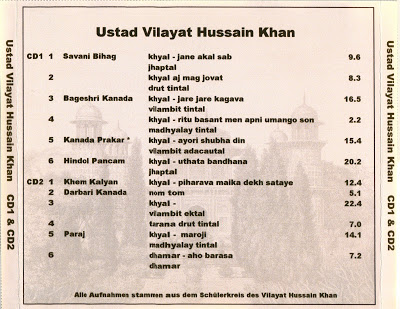 Ustad Vilayat Hussain Khan
CD1 1 Savani Bihag khyal - jane akal sab 9.6
jhaptal
2 khyal aj mag jovat 8.3
drut tintal
3 Bageshri Kanada khyal - jare jare kagava 16.5
vilambit tintal
4 khyal - ritu basant men apni umango son 2.2
madhyalay tintal
5 Kanada Prakar * khyal - ayori shubha din 15.4
vlambit adacautal
6 Hindol Pancam khyal - uthata bandhana 20.2
jhaptal
CD2 1 Khem Kalyan khyal - piharava maika dekh sataye 12.4
2 Darbari Kanada nom tom 5.1
3 khyal - 22.4
vlambit ektal
4 tarana drut tintal 7.0
5 Paraj khyal - maroji 14.1
madhyalay tintal
6 dhamar - aho barasa 7.2
dhamar
Alle Aufnahmes stammen aus dem Schülerkreis des Vilayat Hussain Khan
Ustad Vilayat Hussain Khan CD1 & CD2
Ustad Vilayat Hussain Khan CD1 & CD2